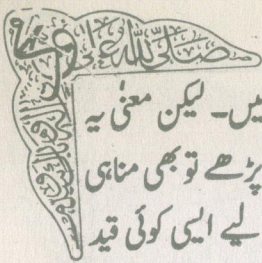 صلى الله على
ہیں۔ لیکن معنیٰ یہ
پڑھے تو بھی مناہی
لیے ایسی کوئی قید